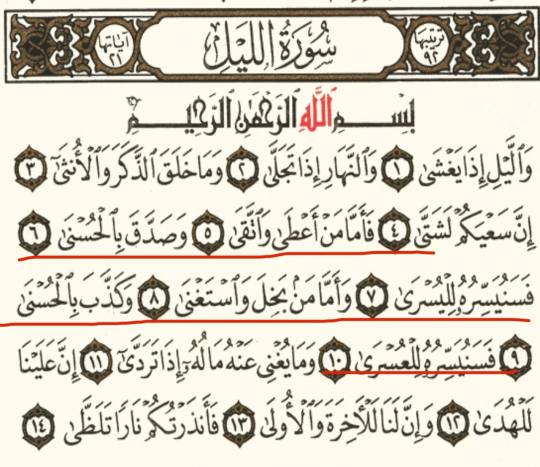 ترتيبها ٩٢ سُورَةُ اللَّيْلِ آياتها ٢١
بِسْمِ ٱللَّهِ ٱلرَّحْمَٰنِ ٱلرَّحِيمِ
وَٱلَّيْلِ إِذَا يَغْشَىٰ ١ وَٱلنَّهَارِ إِذَا تَجَلَّىٰ ٢ وَمَا خَلَقَ ٱلذَّكَرَ وَٱلْأُنثَىٰٓ ٣
إِنَّ سَعْيَكُمْ لَشَتَّىٰ ٤ فَأَمَّا مَنْ أَعْطَىٰ وَٱتَّقَىٰ ٥ وَصَدَّقَ بِٱلْحُسْنَىٰ ٦
فَسَنُيَسِّرُهُۥ لِلْيُسْرَىٰ ٧ وَأَمَّا مَنۢ بَخِلَ وَٱسْتَغْنَىٰ ٨ وَكَذَّبَ بِٱلْحُسْنَىٰ
٩ فَسَنُيَسِّرُهُۥ لِلْعُسْرَىٰ ١٠ وَمَا يُغْنِى عَنْهُ مَالُهُۥٓ إِذَا تَرَدَّىٰٓ ١١ إِنَّ عَلَيْنَا
لَلْهُدَىٰ ١٢ وَإِنَّ لَنَا لَلْـَٔاخِرَةَ وَٱلْأُولَىٰ ١٣ فَأَنذَرْتُكُمْ نَارًا تَلَظَّىٰ ١٤